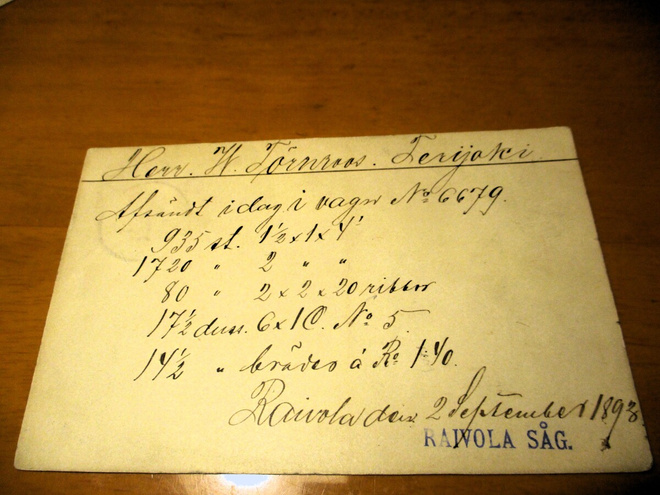 Herr. W. Törnroos. Terijoki
Afsändt idag i vagn No 6679.
935 st. 1½ x 1 x 4'
1720 " 2 " "
80 " 2 x 2 x 20 ribbor
17½ duss. 6 x 10. No 5.
14½ " bräder á Ro 1:40.
Raivola den 2 September 1893
RAIVOLA SÅG.